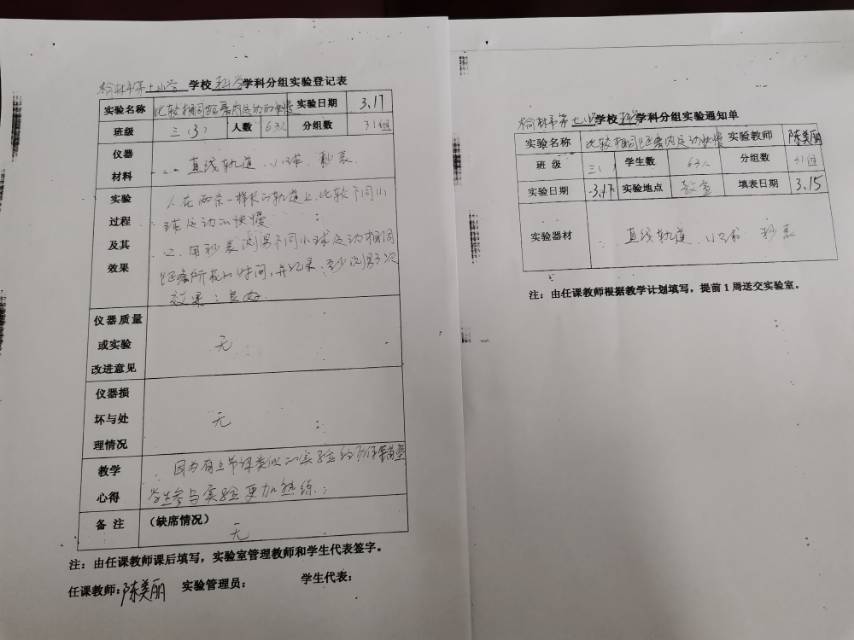 榆林市第十二小学 学校 科学 学科分组实验登记表
实验名称 比较相同距离内运动的快慢 实验日期 3.17
班级 三(3) 人数 63人 分组数 31组
仪器材料 直线轨道、小球、秒表
实验过程及其效果
1、在两条一样长的轨道上,比较不同小
球运动的快慢
2、用秒表测量不同小球运动相同
距离所花的时间,并记录,至少测量3次
效果:良好
仪器质量或实验改进意见 无
仪器损坏与处理情况 无
教学心得
因为有上节课类似的实验
学生参与实验更加熟练
备注 (缺席情况)
无
注:由任课教师课后填写,实验室管理教师和学生代表签字。
任课教师:陈美丽 实验管理员: 学生代表:
榆林市第 学校 科学 学科分组实验通知单
实验名称 比较相同距离内运动快慢 实验教师 陈美丽
班级 学生数 63人 分组数 31组
实验日期 3.17 实验地点 教室 填表日期 3.15
实验器材 直线轨道、小球 秒表
注:由任课教师根据教学计划填写,提前1周送交实验室。